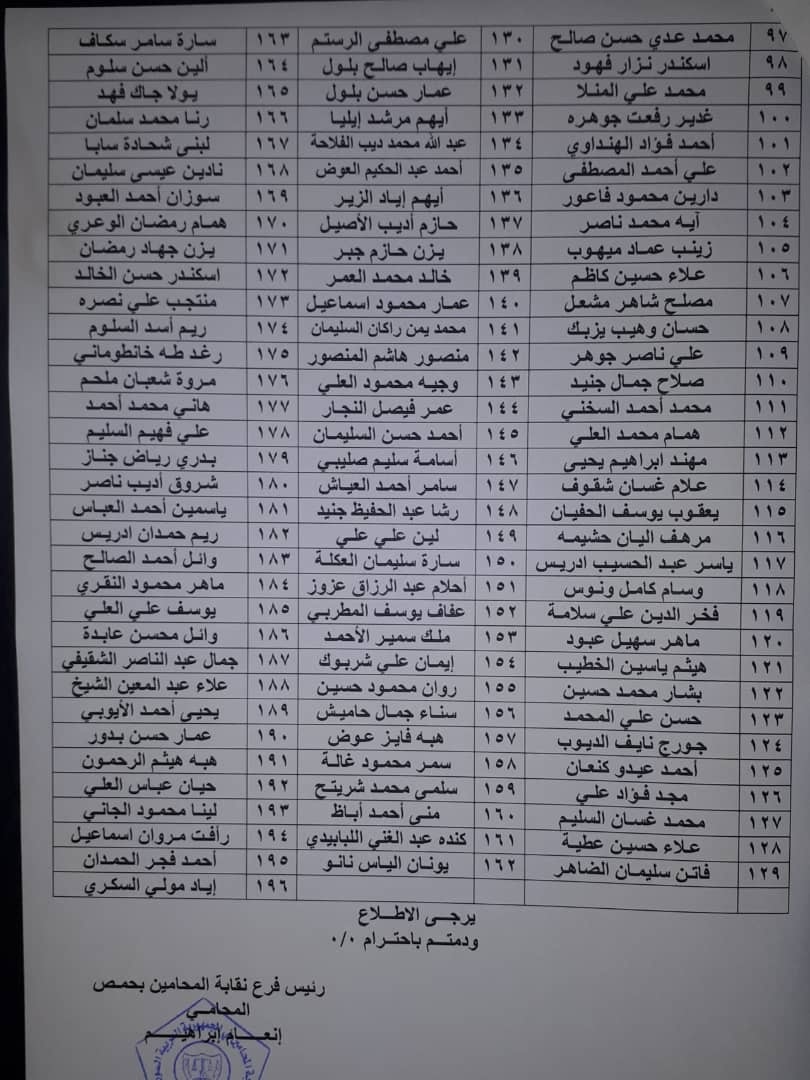 ٩٧ محمد عدي حسن صالح ١٣٠ علي مصطفى الرستم ١٦٣ سارة سامر سكاف
٩٨ اسكندر نزار فهود ١٣١ إيهاب صالح بلول ١٦٤ ألين حسن سلوم
٩٩ محمد علي المنلا ١٣٢ عمار حسن بلول ١٦٥ يولا جاك فهد
١٠٠ غدير رفعت جوهره ١٣٣ أيهم مرشد إيليا ١٦٦ رنا محمد سلمان
١٠١ أحمد فؤاد الهنداوي ١٣٤ عبد الله محمد ديب الفلاحة ١٦٧ لبنى شحادة سابا
١٠٢ علي أحمد المصطفى ١٣٥ أحمد عبد الحكيم العوض ١٦٨ نادين عيسى سليمان
١٠٣ دارين محمود فاعور ١٣٦ أيهم إياد الزير ١٦٩ سوزان أحمد العبود
١٠٤ آيه محمد ناصر ١٣٧ حازم أديب الأصيل ١٧٠ همام رمضان الوعري
١٠٥ زينب عماد ميهوب ١٣٨ يزن حازم جبر ١٧١ يزن جهاد رمضان
١٠٦ علاء حسين كاظم ١٣٩ خالد محمد العمر ١٧٢ اسكندر حسن الخالد
١٠٧ مصلح شاهر مشعل ١٤٠ عمار محمود اسماعيل ١٧٣ منتجب علي نصره
١٠٨ حسان وهيب يزبك ١٤١ محمد يمن راكان السليمان ١٧٤ ريم أسد السلوم
١٠٩ علي ناصر جوهر ١٤٢ منصور هاشم المنصور ١٧٥ رغد طه خانطوماني
١١٠ صلاح جمال جنيد ١٤٣ وجيه محمود العلي ١٧٦ مروة شعبان ملحم
١١١ محمد أحمد السخني ١٤٤ عمر فيصل النجار ١٧٧ هاني محمد أحمد
١١٢ همام محمد العلي ١٤٥ أحمد حسن السليمان ١٧٨ علي فهيم السليم
١١٣ مهند ابراهيم يحيى ١٤٦ أسامة سليم صليبي ١٧٩ بدري رياض جناز
١١٤ علام غسان شقوف ١٤٧ سامر أحمد العياش ١٨٠ شروق أديب ناصر
١١٥ يعقوب يوسف الحفيان ١٤٨ رشا عبد الحفيظ جنيد ١٨١ ياسمين أحمد العباس
١١٦ مرهف اليان حشيمه ١٤٩ لين علي علي ١٨٢ ريم حمدان ادريس
١١٧ ياسر عبد الحسيب ادريس ١٥٠ سارة سليمان العكلة ١٨٣ وائل أحمد الصالح
١١٨ وسام كامل ونوس ١٥١ أحلام عبد الرزاق عزوز ١٨٤ ماهر محمود النقري
١١٩ فخر الدين علي سلامة ١٥٢ عفاف يوسف المطربي ١٨٥ يوسف علي العلي
١٢٠ ماهر سهيل عبود ١٥٣ ملك سمير الأحمد ١٨٦ وائل محسن عابدة
١٢١ هيثم ياسين الخطيب ١٥٤ إيمان علي شربوك ١٨٧ جمال عبد الناصر الشقيفي
١٢٢ بشار محمد حسين ١٥٥ روان محمود حسين ١٨٨ علاء عبد المعين الشيخ
١٢٣ حسن علي المحمد ١٥٦ سناء جمال حاميش ١٨٩ يحيى أحمد الأيوبي
١٢٤ جورج نايف الديوب ١٥٧ هبه فايز عوض ١٩٠ عمار حسن بدور
١٢٥ أحمد عيدو كنعان ١٥٨ سمر محمود غالة ١٩١ هبه هيثم الرحمون
١٢٦ مجد فؤاد علي ١٥٩ سلمى محمد شريتح ١٩٢ حيان عباس العلي
١٢٧ محمد غسان السليم ١٦٠ منى أحمد أباظ ١٩٣ لينا محمود الجاني
١٢٨ علاء حسين عطية ١٦١ كنده عبد الغني اللبابيدي ١٩٤ رأفت مروان اسماعيل
١٢٩ فاتن سليمان الضاهر ١٦٢ يونان الياس نانو ١٩٥ أحمد فجر الحمدان
١٩٦ إياد مولي السكري
يرجى الاطلاع
ودمتم باحترام ٠/٠
رئيس فرع نقابة المحامين بحمص
المحامي
إنعام إبراهيم